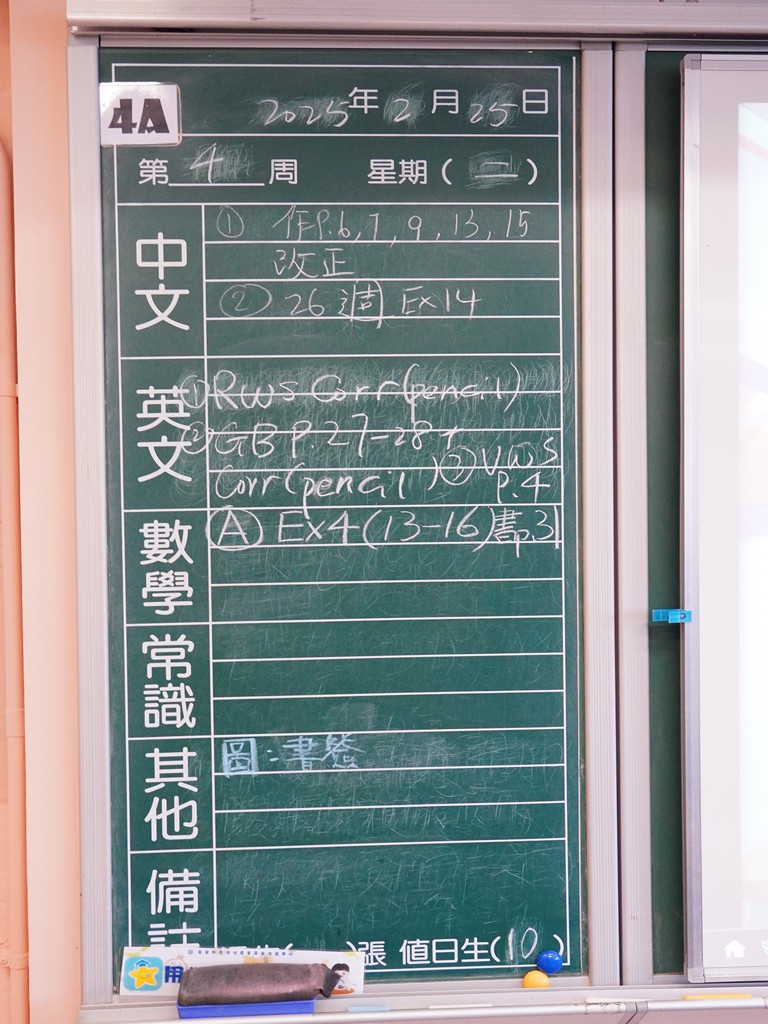 4A
2025年2月25日
第4周 星期(二)
中文
① 作P.6,7,9,13,15
改正
② 26週 Ex14
英文
① RWS Corr(pencil)
② GB P.27-28+
Corr(pencil) ③ VWS
P.4
數學
Ⓐ Ex4(13-16)書p.31
常識
其他
圖:書簽
備註
張 值日生(10)
用